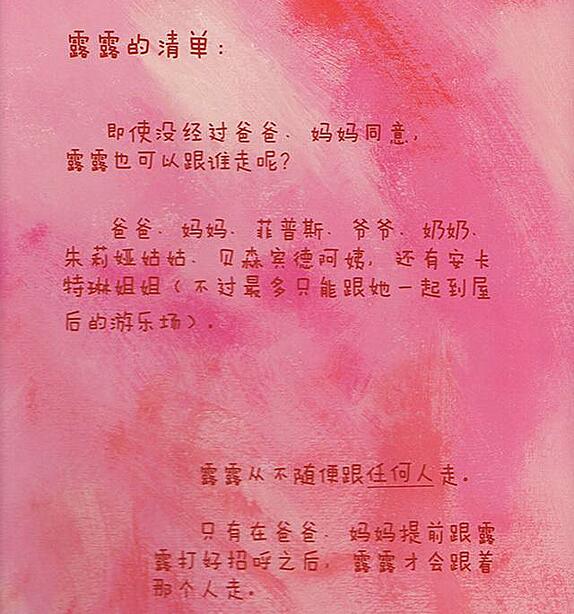 露露的清单：
即使没经过爸爸、妈妈同意，
露露也可以跟谁走呢？
爸爸、妈妈、菲普斯、爷爷、奶奶、
朱莉娅姑姑、贝森宾德阿姨，还有安卡
特琳姐姐（不过最多只能跟她一起到屋
后的游乐场）。
露露从不随便跟任何人走。
只有在爸爸、妈妈提前跟露
露打好招呼之后，露露才会跟着
那个人走。